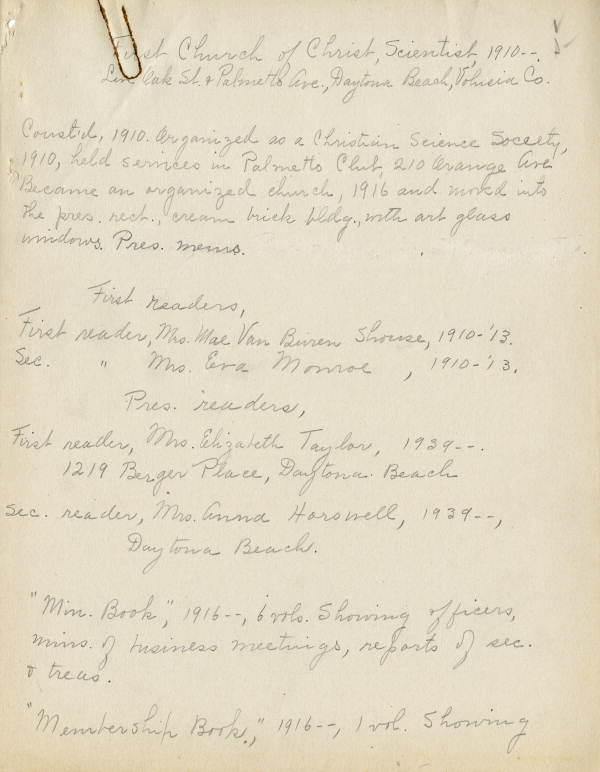 First Church of Christ, Scientist, 1910--.
Live Oak St. & Palmetto Ave., Daytona Beach, Volusia Co.
Const'd, 1910. Organized as a Christian Science Society,
1910, held services in Palmetto Club, 210 Orange Ave
Became an organized church, 1916 and moved into
the pres. rect., cream brick bldg., with art glass
windows. Pres. mems.
First readers,
First reader, Mrs. Mae Van Buren Shouse, 1910-'13.
Sec. " Mrs. Eva Monroe, 1910-'13.
Pres. readers,
First reader, Mrs. Elizabeth Taylor, 1939--.
1219 Berger Place, Daytona Beach
Sec. reader, Mrs. Anna Horswell, 1939--,
Daytona Beach.
"Min. Book", 1916--, 6 vols. Showing officers,
mins. of business meetings, reports of sec.
& treas.
"Membership Book," 1916--, 1 vol. Showing